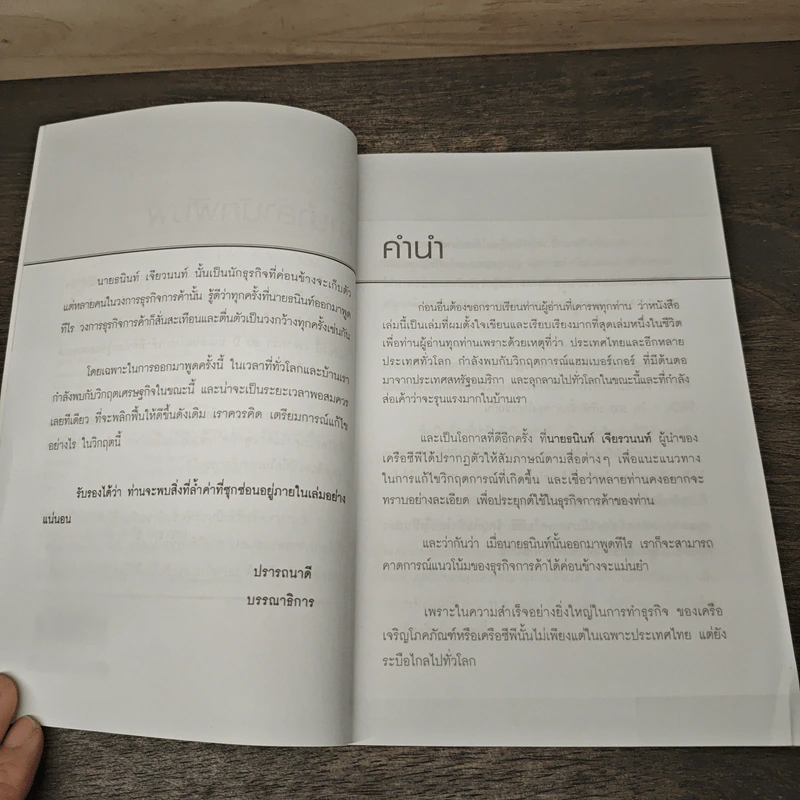 นายธนินท์ เจียวนนท์ นั้นเป็นนักธุรกิจที่ค่อนข้างจะเก็บตัว
แต่หลายคนในวงการธุรกิจการค้านั้น รู้ดีว่าทุกครั้งที่นายธนินท์ออกมาพูด
ทีไร วงการธุรกิจการค้าก็สั่นสะเทือนและตื่นตัวเป็นวงกว้างทุกครั้งเช่นกัน
โดยเฉพาะในการออกมาพูดครั้งนี้ ในเวลาที่ทั่วโลกและบ้านเรา
กำลังพบกับวิกฤตเศรษฐกิจในขณะนี้ และน่าจะเป็นระยะเวลาพอสมควร
เลยทีเดียว ที่จะพลิกฟื้นให้ดีขึ้นดังเดิม เราควรคิด เตรียมการณ์แก้ไข
อย่างไร ในวิกฤตนี้
รับรองได้ว่า ท่านจะพบสิ่งที่ล้ำค่าที่ซุกซ่อนอยู่ภายในเล่มอย่าง
แน่นอน
ปรารถนาดี
บรรณาธิการ
คำนำ
ก่อนอื่นต้องขอกราบเรียนท่านผู้อ่านที่เคารพทุกท่าน ว่าหนังสือ
เล่มนี้เป็นเล่มที่ผมตั้งใจเขียนและเรียบเรียงมากที่สุดเล่มหนึ่งในชีวิต
เพื่อท่านผู้อ่านทุกท่านเพราะด้วยเหตุที่ว่า ประเทศไทยและอีกหลาย
ประเทศทั่วโลก กำลังพบกับวิกฤตการณ์แฮมเบอร์เกอร์ ที่มีต้นตอ
มาจากประเทศสหรัฐอเมริกา และลุกลามไปทั่วโลกในขณะนี้และที่กำลัง
ส่อเค้าว่าจะรุนแรงมากในบ้านเรา
และเป็นโอกาสที่ดีอีกครั้ง ที่นายธนินท์ เจียรวนนท์ ผู้นำของ
เครือซีพีได้ปรากฏตัวให้สัมภาษณ์ตามสื่อต่างๆ เพื่อแนะแนวทาง
ในการแก้ไขวิกฤตการณ์ที่เกิดขึ้น และเชื่อว่าหลายท่านคงอยากจะ
ทราบอย่างละเอียด เพื่อประยุกต์ใช้ในธุรกิจการค้าของท่าน
และว่ากันว่า เมื่อนายธนินท์นั้นออกมาพูดทีไร เราก็จะสามารถ
คาดการณ์แนวโน้มของธุรกิจการค้าได้ค่อนข้างจะแม่นยำ
เพราะในความสำเร็จอย่างยิ่งใหญ่ในการทำธุรกิจ ของเครือ
เจริญโภคภัณฑ์หรือเครือซีพีนั้นไม่เพียงแต่ในเฉพาะประเทศไทย แต่ยัง
ระบือไกลไปทั่วโลก